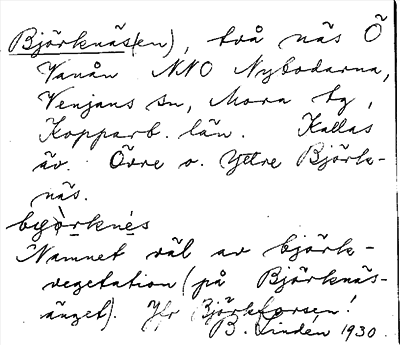 Björknäs(en), två näs Ö
Vanån NNO Nybodarna,
Venjans sn, Mora tg,
Kopparb. län. Kallas
äv. Övre o. Yttre Björk-
näs.
byò̱rknés
Namnet väl av björk-
vegetation (på Björknäs-
änget). Jfr Björkforsen!
B. Lindén 1930.